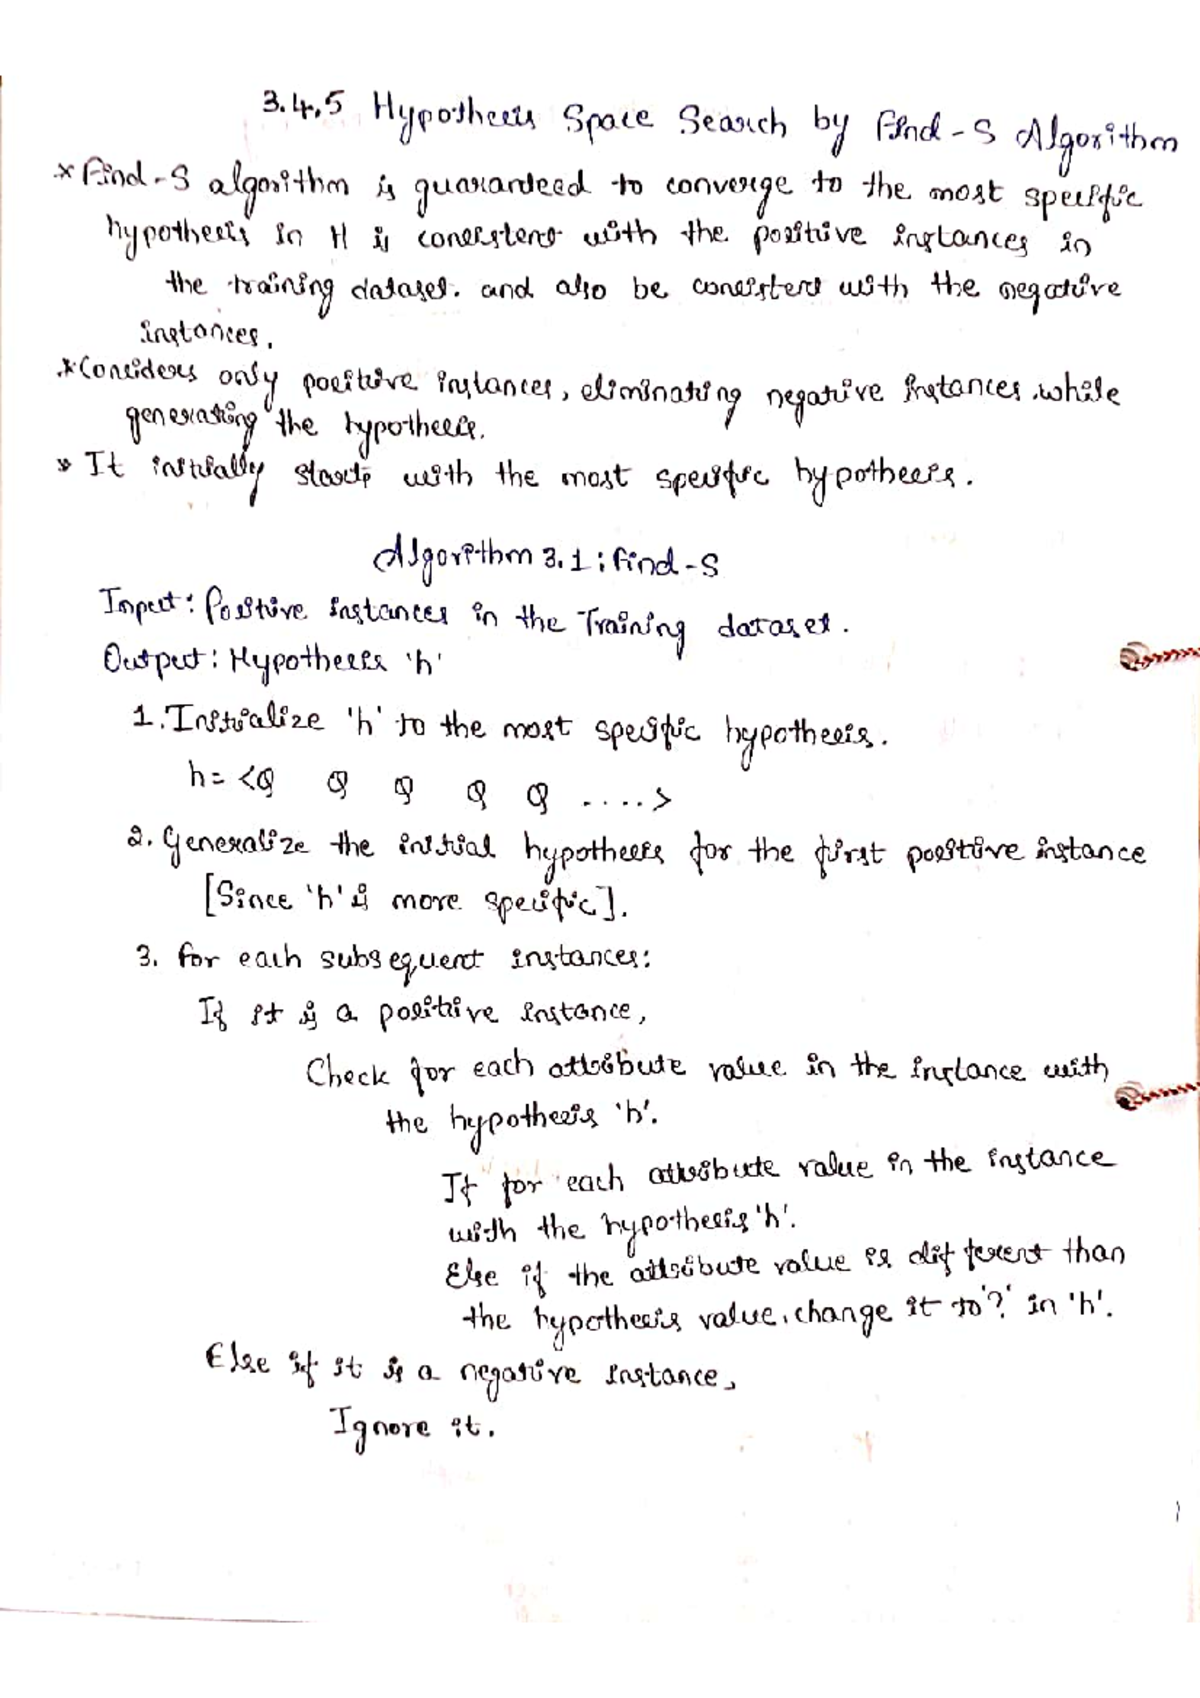 3.4.5 Hypothesis Space Search by Find-S Algorithm
* Find-S algorithm is guaranteed to converge to the most specific
hypothesis in H is consistent with the positive instances in
the training dataset. and also be consistent with the negative
instances.
* Considers only positive instances, eliminating negative instances while
generating the hypothesis.
* It initially starts with the most specific hypothesis.
Algorithm 3.1: Find-S
Input: Positive instances in the Training dataset.
Output: Hypothesis 'h'
1. Initialize 'h' to the most specific hypothesis.
h = <φ φ φ φ φ ....>
2. Generalize the initial hypothesis for the first positive instance
[Since 'h' is more specific].
3. For each subsequent instances:
If it is a positive instance,
Check for each attribute value in the instance with
the hypothesis 'h'.
If for each attribute value in the instance
with the hypothesis 'h'.
Else if the attribute value is different than
the hypothesis value, change it to '?' in 'h'.
Else if it is a negative instance,
Ignore it.